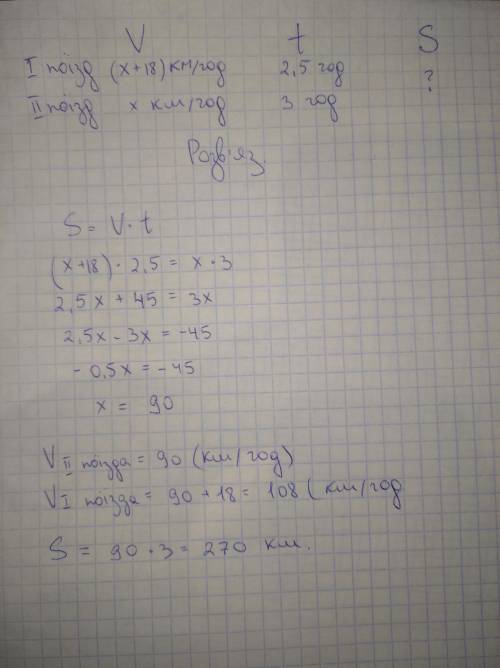 V t S
I поїзд (x+18) км/год 2,5 год ?
II поїзд x км/год 3 год
Розв'яз.
S = V · t
(x+18) · 2,5 = x · 3
2,5x + 45 = 3x
2,5x - 3x = -45
- 0,5x = -45
x = 90
V II поїзда = 90 (км/год)
V I поїзда = 90 + 18 = 108 (км/год
S = 90 · 3 = 270 км.